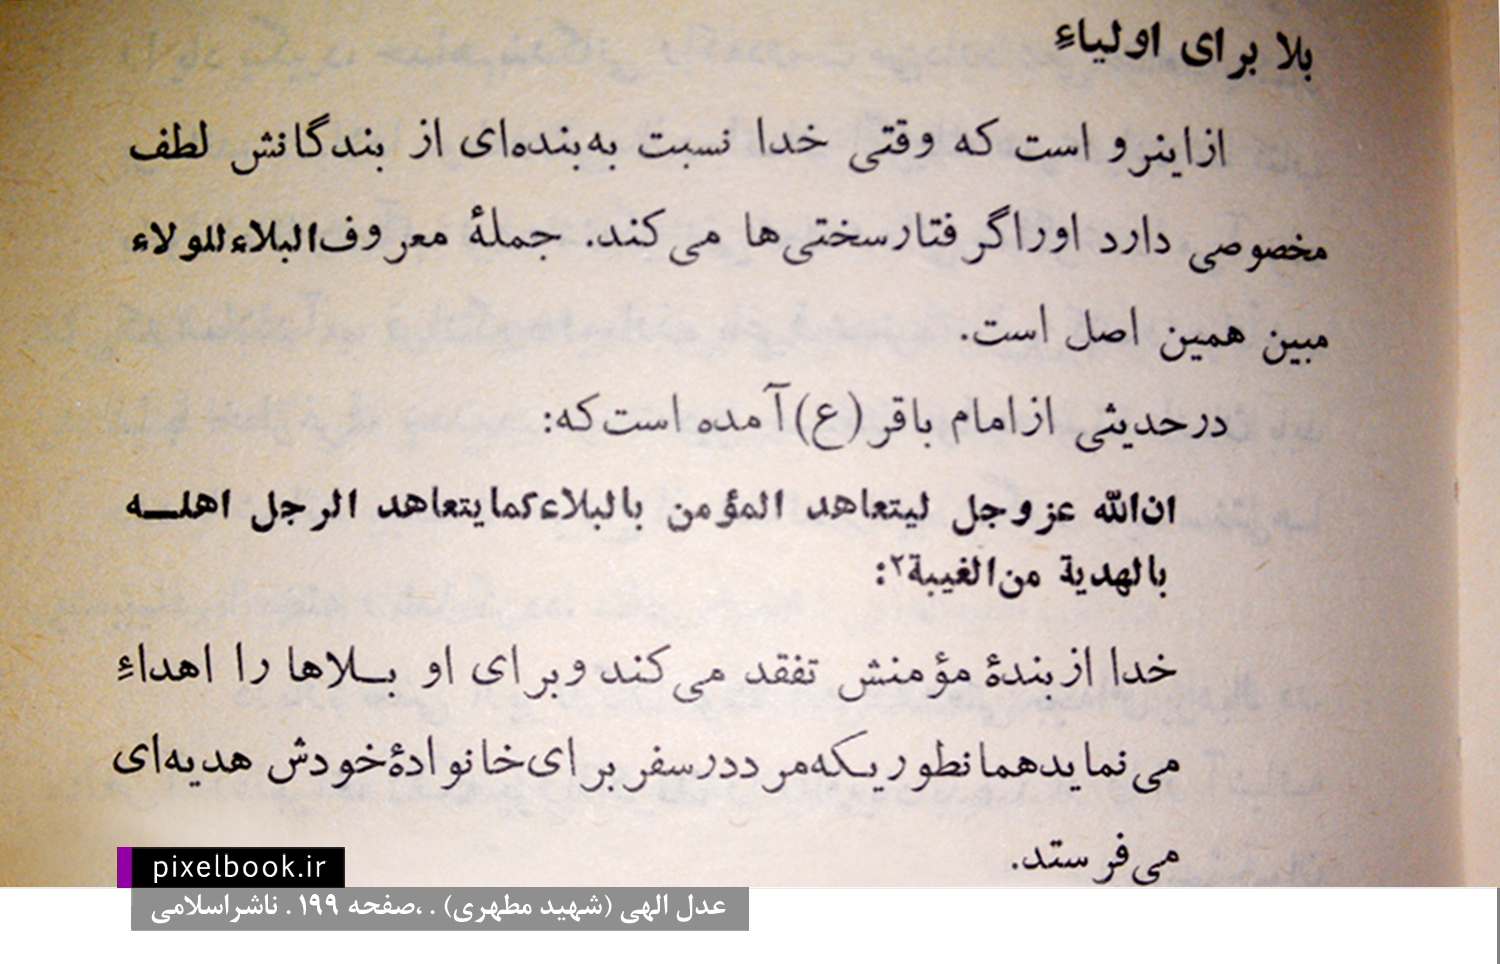 بلا برای اولیاءِ
ازاینرو است که وقتی خدا نسبت به‌بنده‌ای از بندگانش لطف
مخصوصی دارد اوراگرفتارسختی‌ها می‌کند. جملهٔ معروف‌البلاءللولاء
مبین همین اصل است.
درحدیثی ازامام باقر(ع)آمده است‌که:
ان‌الله عزوجل لیتعاهد المؤمن بالبلاءکمایتعاهد الرجل اهلــه
بالهدیة من‌الغیبة۲:
خدا ازبندهٔ مؤمنش تفقد می‌کند وبرای او بــلاها را اهداءِ
می‌نمایدهمانطوریـکه‌مرددرسفربرای‌خانوادهٔ‌خودش هدیه‌ای
می‌فرستد.
pixelbook.ir
عدل الهی (شهید مطهری) . ،صفحه ۱۹۹ . ناشراسلامی